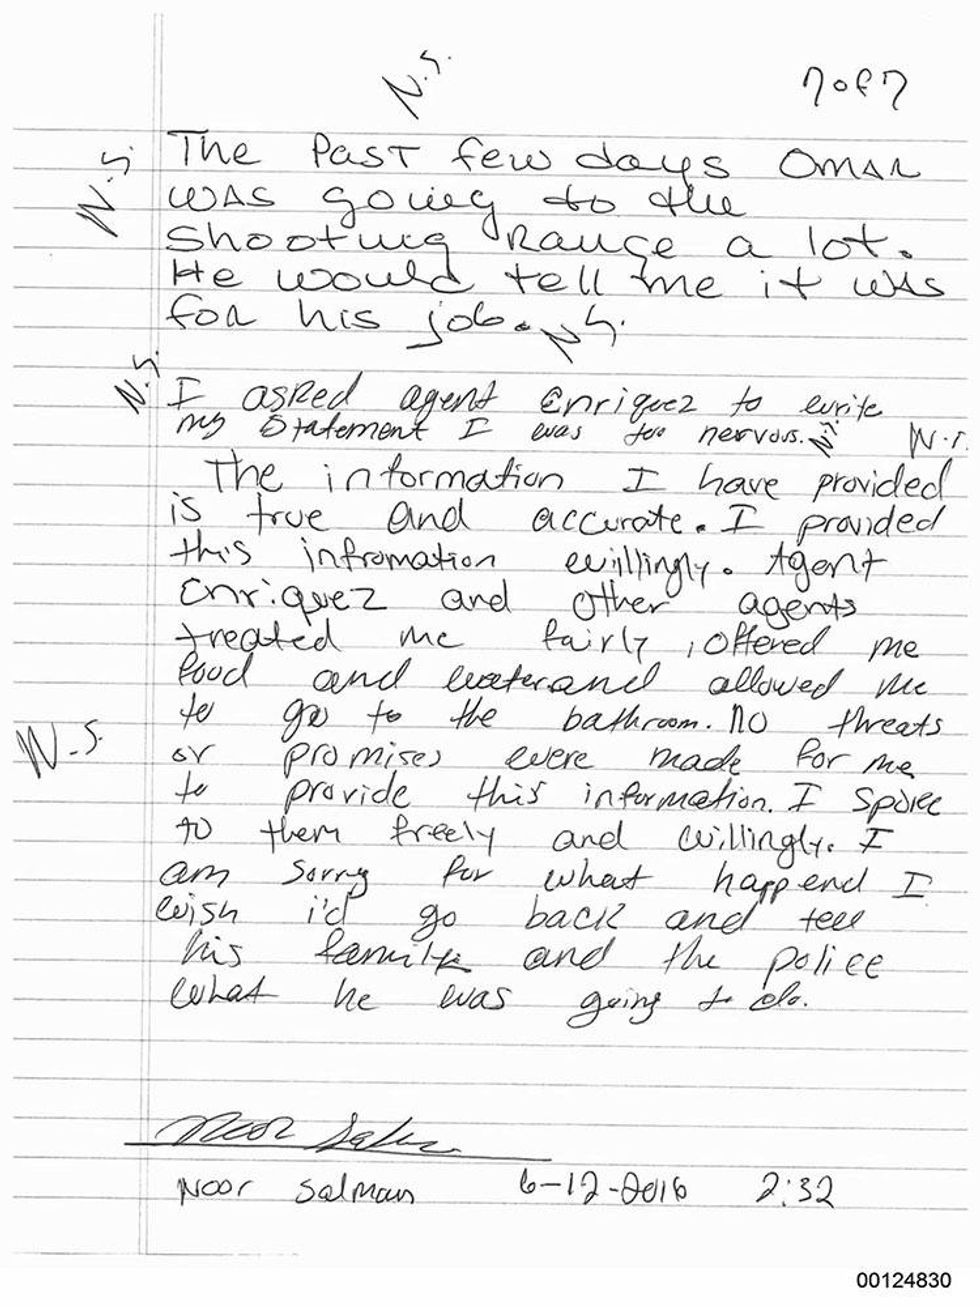 N.S.
7 of 7
N.S.
The Past few days Omar
was going to the
shooting Range a lot.
He would tell me it was
for his job. N.S.
N.S.
I asked agent Enriquez to write
my Statement I was too nervous. N.S. N.S.
The information I have provided
is true and accurate. I provided
this infromation willingly. Agent
Enriquez and other agents
treated me fairly, offered me
food and water and allowed me
to go to the bathroom. No threats
N.S.
or promises were made for me
to provide this information. I spoke
to them freely and willingly. I
am sorry for what happend I
wish i'd go back and tell
his family and the police
what he was going to do.
Noor Salman
Noor Salman 6-12-2016 2:32
00124830